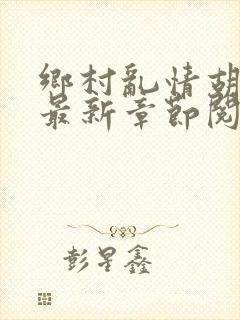 鄉村亂情胡
最新章節閱
彭星鑫